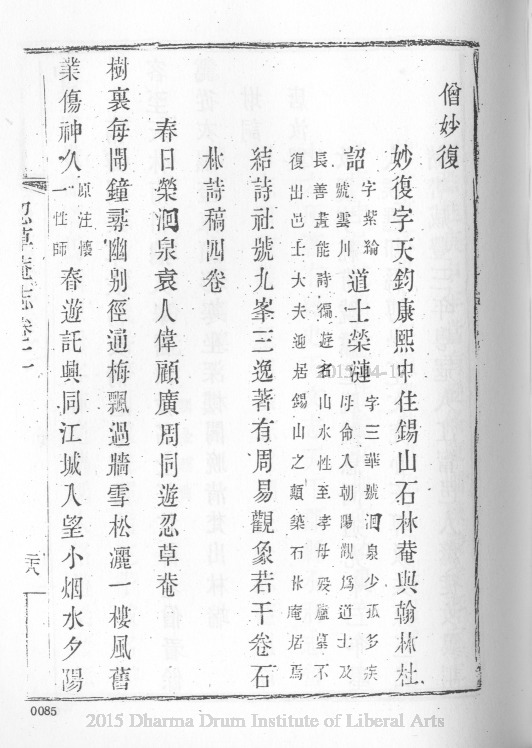 僧妙復
妙復字天鈞康熙中住錫山石林菴與翰林杜
詔字紫綸號雲川道士榮漣字三華號洄泉少孤多疾母命入朝陽觀爲道士及
長善畫能詩徧遊名山水性至孝母歿廬墓不
復出邑士大夫迎居錫山之顛築石林庵居焉
結詩社號九峯三逸著有周易觀象若干卷石
林詩稿四卷
春日榮洄泉袁人偉顧廣周同遊忍草菴
樹裏每聞鐘尋幽別徑通梅飄過牆雪松灑一樓風舊
業傷神久原注懷一性師春遊託興同江城入望小烟水夕陽
忍草菴志卷二
0085
2015 Dharma Drum Institute of Liberal Arts